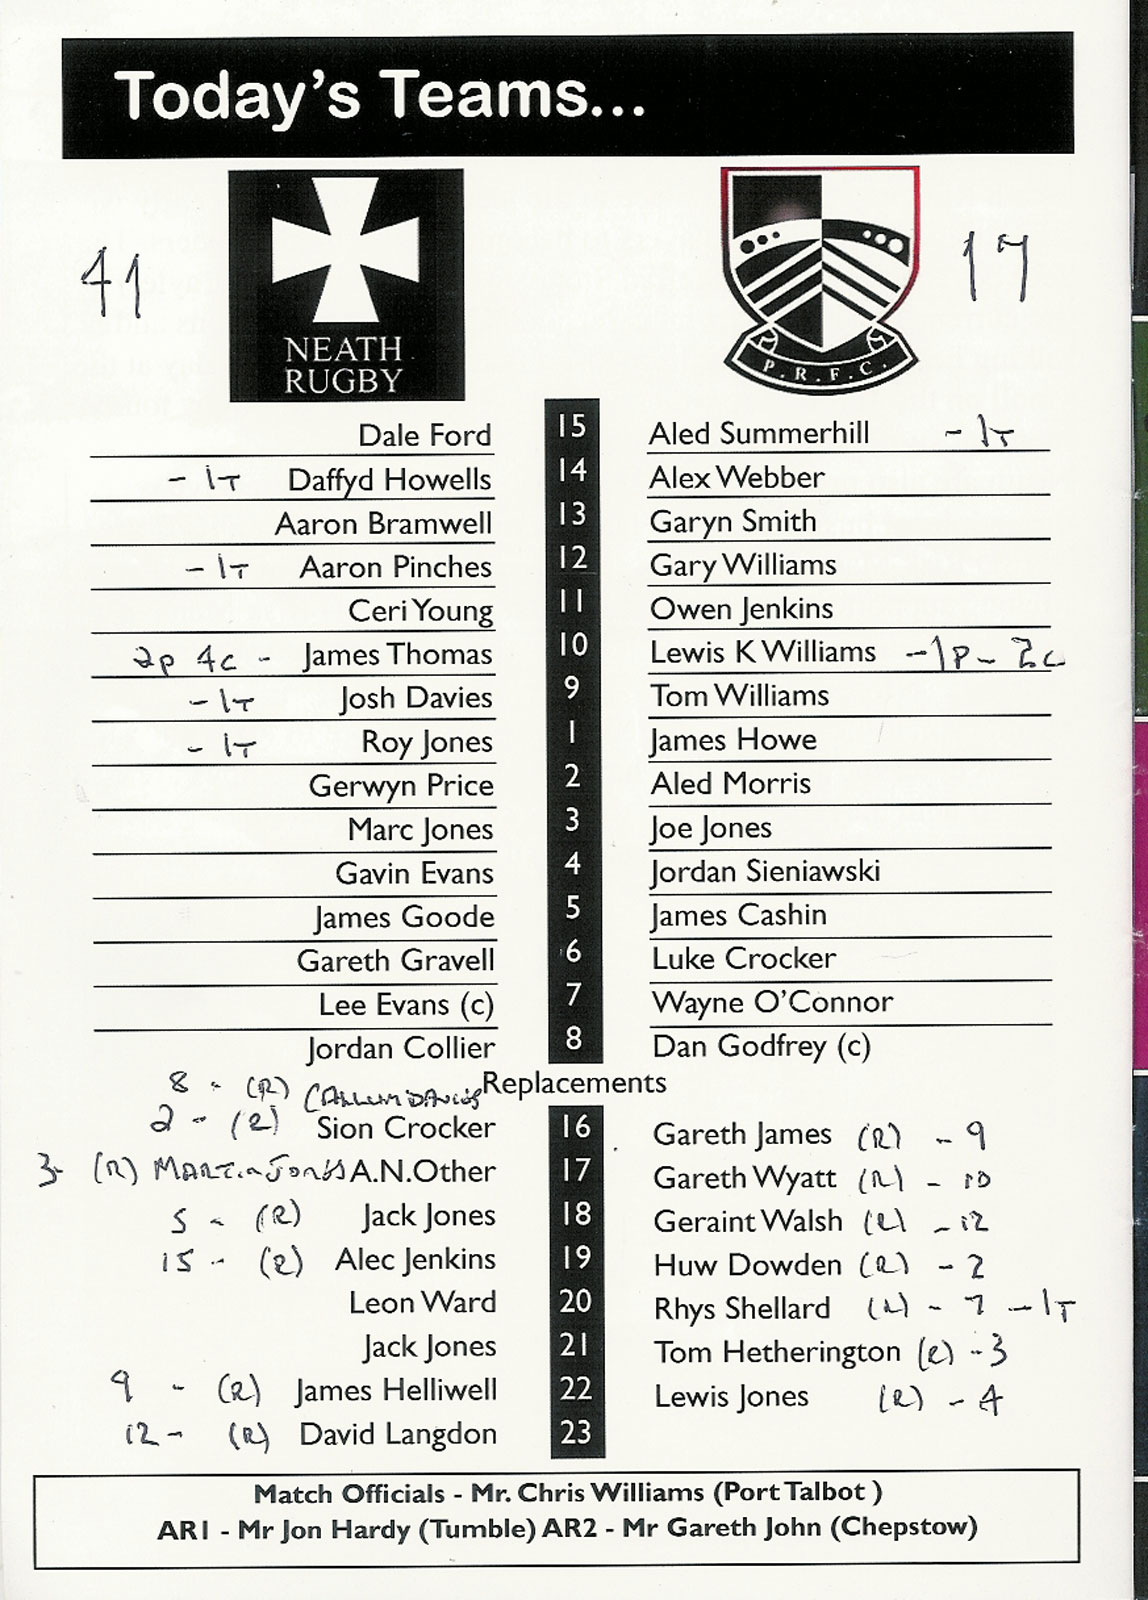 Today's Teams...
41 NEATH RUGBY P.R.F.C. 17
Dale Ford 15 Aled Summerhill - 1T
- 1T Daffyd Howells 14 Alex Webber
Aaron Bramwell 13 Garyn Smith
- 1T Aaron Pinches 12 Gary Williams
Ceri Young 11 Owen Jenkins
2p 4c - James Thomas 10 Lewis K Williams - 1p - 2c
- 1T Josh Davies 9 Tom Williams
- 1T Roy Jones 1 James Howe
Gerwyn Price 2 Aled Morris
Marc Jones 3 Joe Jones
Gavin Evans 4 Jordan Sieniawski
James Goode 5 James Cashin
Gareth Gravell 6 Luke Crocker
Lee Evans (c) 7 Wayne O'Connor
Jordan Collier 8 Dan Godfrey (c)
8 - (R) CALLUM DAVIES Replacements
2 - (R) Sion Crocker 16 Gareth James (R) - 9
3 - (R) MARTIN JONES A.N.Other 17 Gareth Wyatt (R) - 10
5 - (R) Jack Jones 18 Geraint Walsh (R) - 12
15 - (R) Alec Jenkins 19 Huw Dowden (R) - 2
Leon Ward 20 Rhys Shellard (R) - 7 - 1T
Jack Jones 21 Tom Hetherington (R) - 3
9 - (R) James Helliwell 22 Lewis Jones (R) - 4
12 - (R) David Langdon 23
Match Officials - Mr. Chris Williams (Port Talbot )
AR1 - Mr Jon Hardy (Tumble) AR2 - Mr Gareth John (Chepstow)